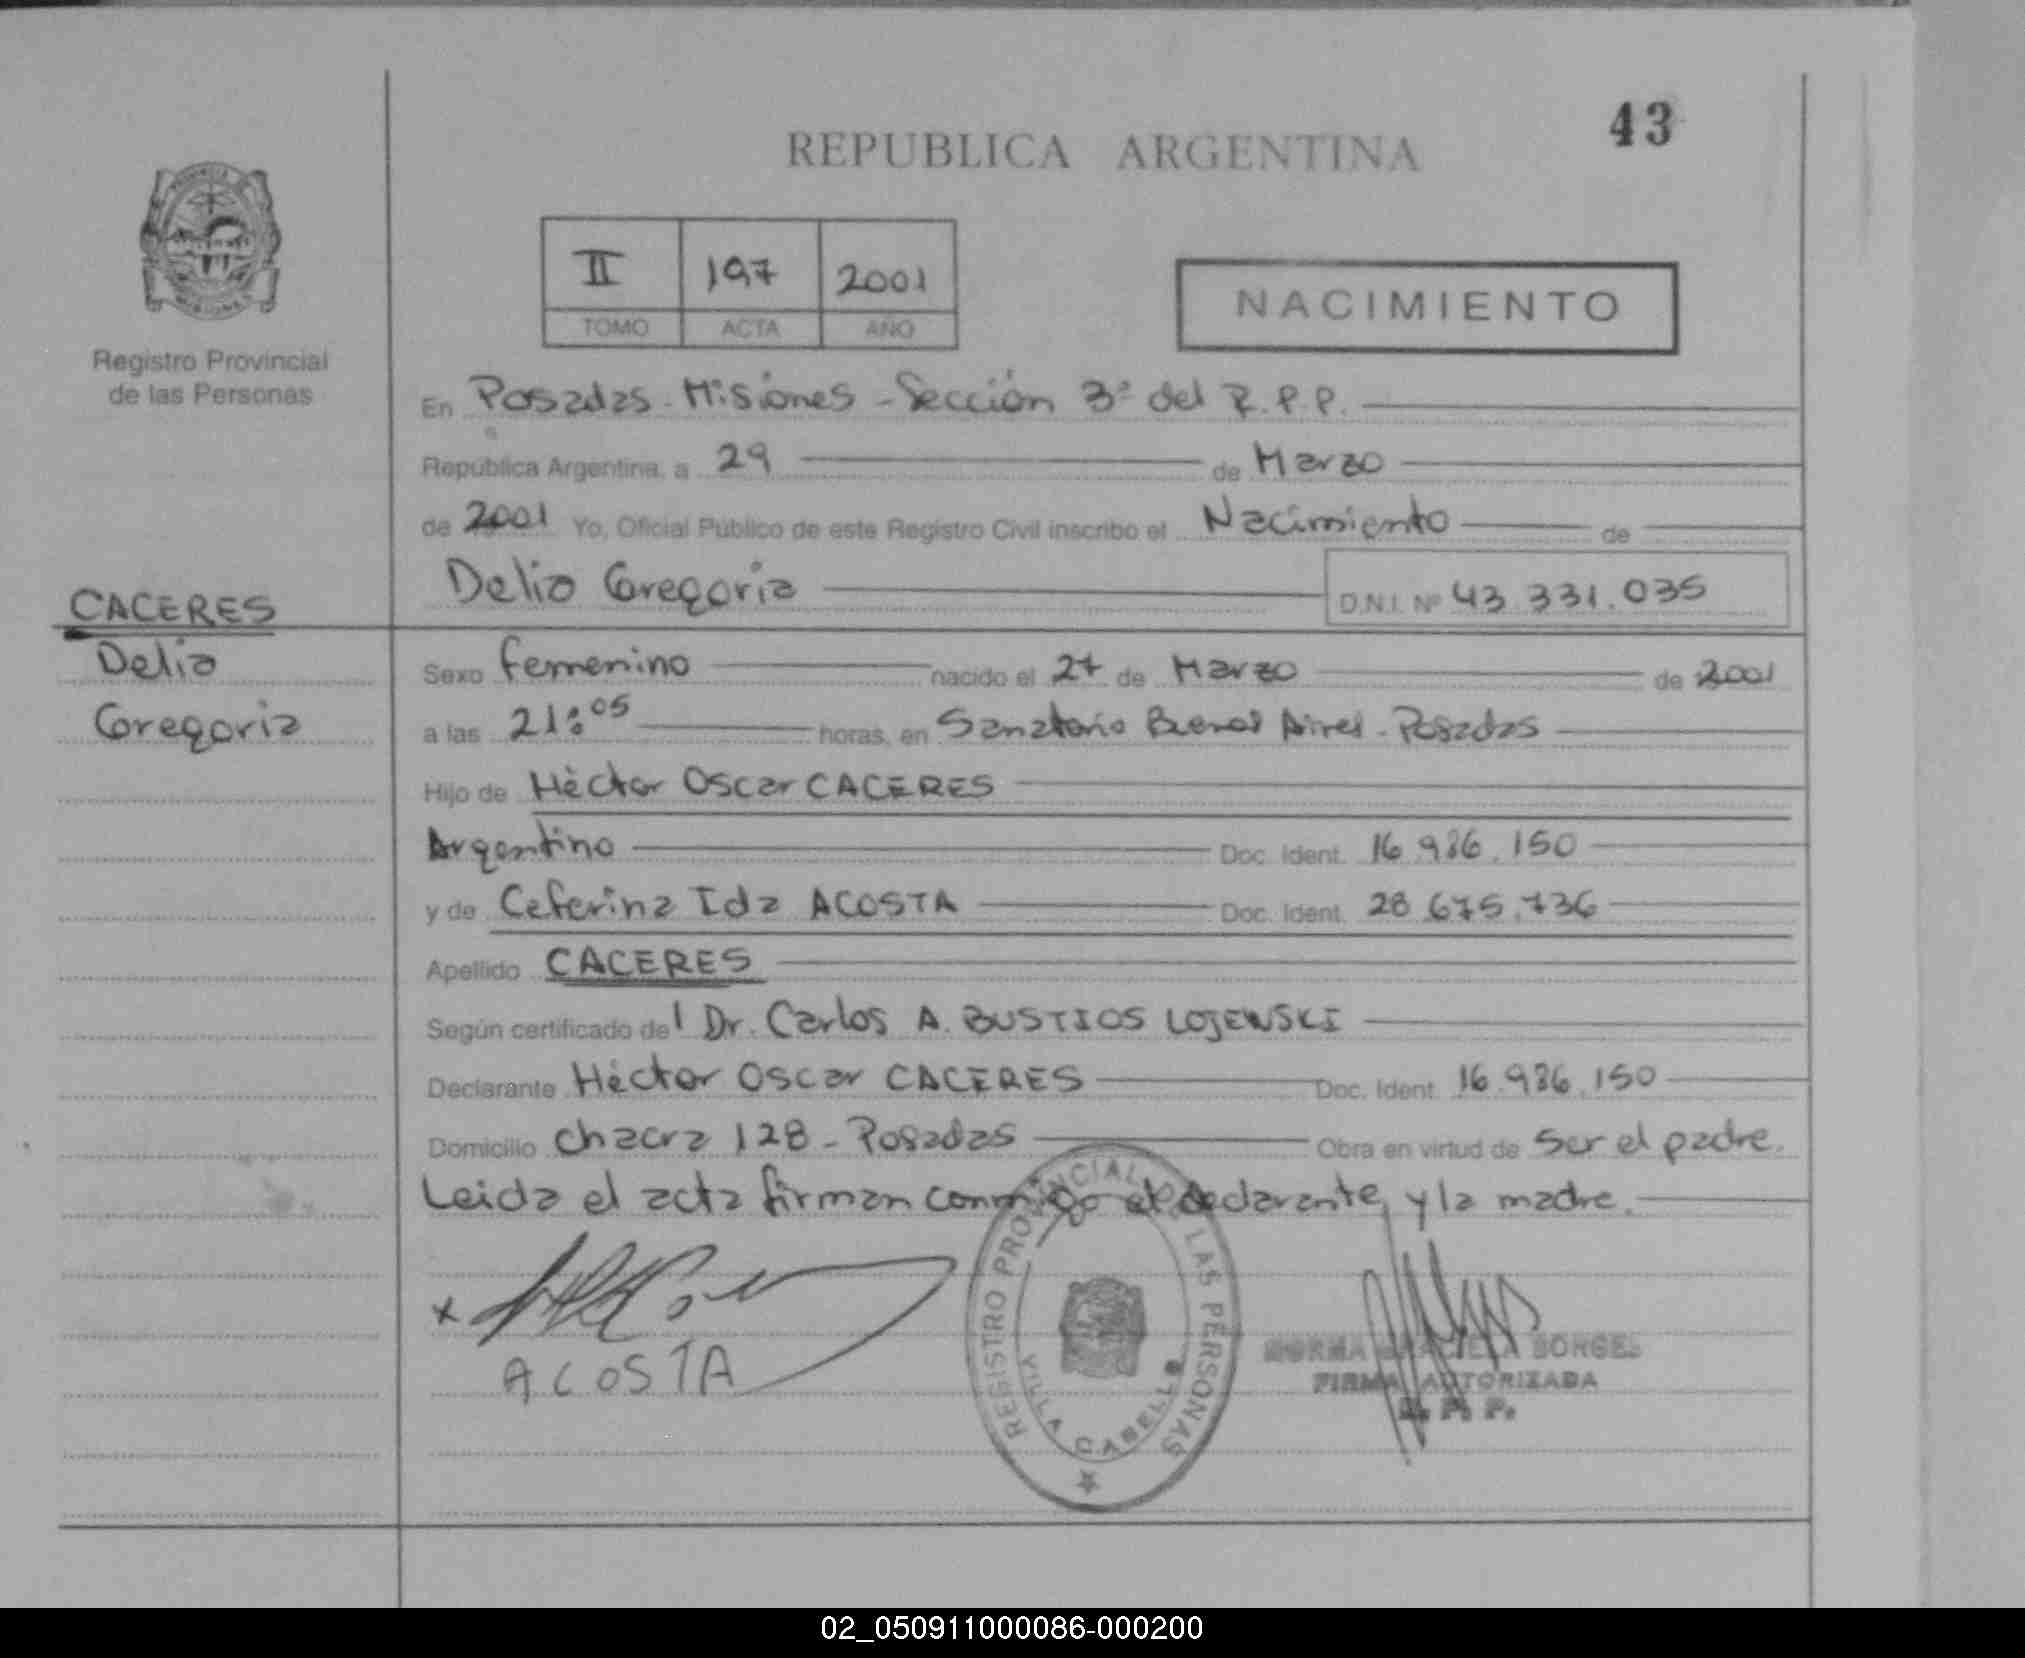 43
REPUBLICA ARGENTINA
II 197 2001
TOMO ACTA AÑO
NACIMIENTO
Registro Provincial
de las Personas
En Posadas - Misiones - Sección 3ª del R.P.P.
República Argentina, a 29 de Marzo
de 2001 Yo, Oficial Público de este Registro Civil inscribo el Nacimiento de
Delia Gregoria D.N.I. Nº 43.331.035
CACERES
Delia
Gregoria
Sexo femenino nacido el 27 de Marzo de 2001
a las 21:05 horas, en Sanatorio Buenos Aires - Posadas
Hijo de Héctor Oscar CACERES
Argentino Doc. Ident. 16.986.150
y de Ceferina Ida ACOSTA Doc. Ident. 28.675.736
Apellido CACERES
Según certificado de l Dr. Carlos A. BUSTIOS LOJEWSKI
Declarante Héctor Oscar CACERES Doc. Ident. 16.986.150
Domicilio chacra 128 - Posadas Obra en virtud de ser el padre.
Leida el acta firman conmigo el declarante y la madre.
ACOSTA
REGISTRO PROVINCIAL DE LAS PERSONAS
VILLA CABELLO
NORMA GRACIELA BORGES
FIRMA AUTORIZADA
R. P. P.
02_050911000086-000200